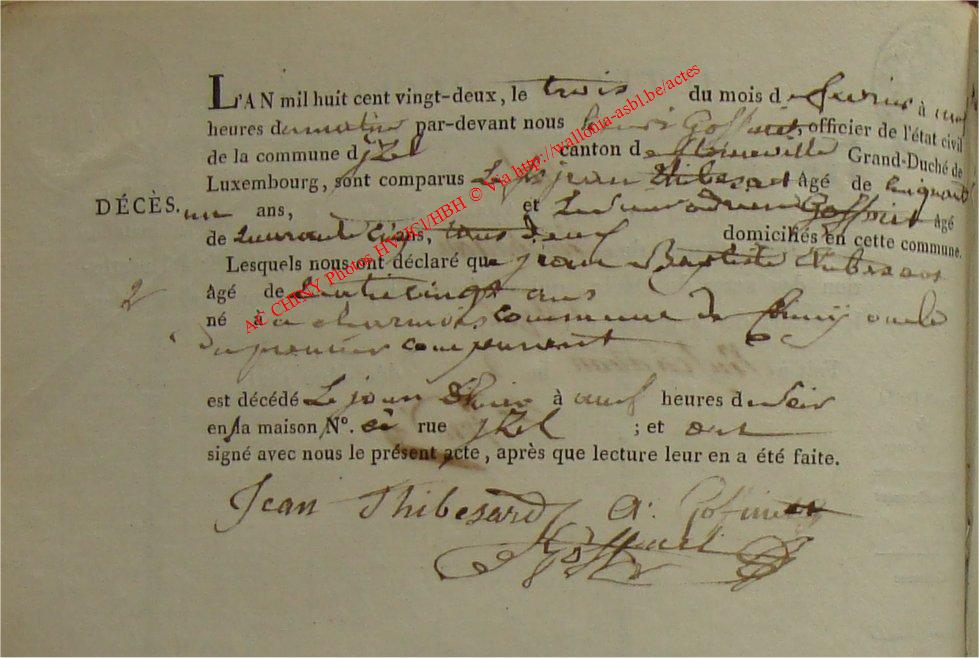 L'AN mil huit cent vingt-deux, le trois du mois de fevrier à neuf
heures du matin par-devant nous henri Goffinet, officier de l'état civil
de la commune d jzel canton de florenville Grand-Duché de
Luxembourg, sont comparus Le jean thibesart âgé de cinquante
DÉCÈS.
un ans, et Goffinet âgé
de ans, tous deux domiciliés en cette commune.
Lesquels nous ont déclaré que jean Baptiste thibesart
2
âgé de quatre vingt ans
né à la charmois commune de Chiny oncle
du premier comparant
est décédé Le jour d'hier à neuf heures du soir
en sa maison N°. rue jzel ; et ont
signé avec nous le présent acte, après que lecture leur en a été faite.
Jean Thibesard A: Gofinet
Goffinet
AC CHINY Photos HVJGJ/HBH © Via http://wallonia-asbl.be/actes